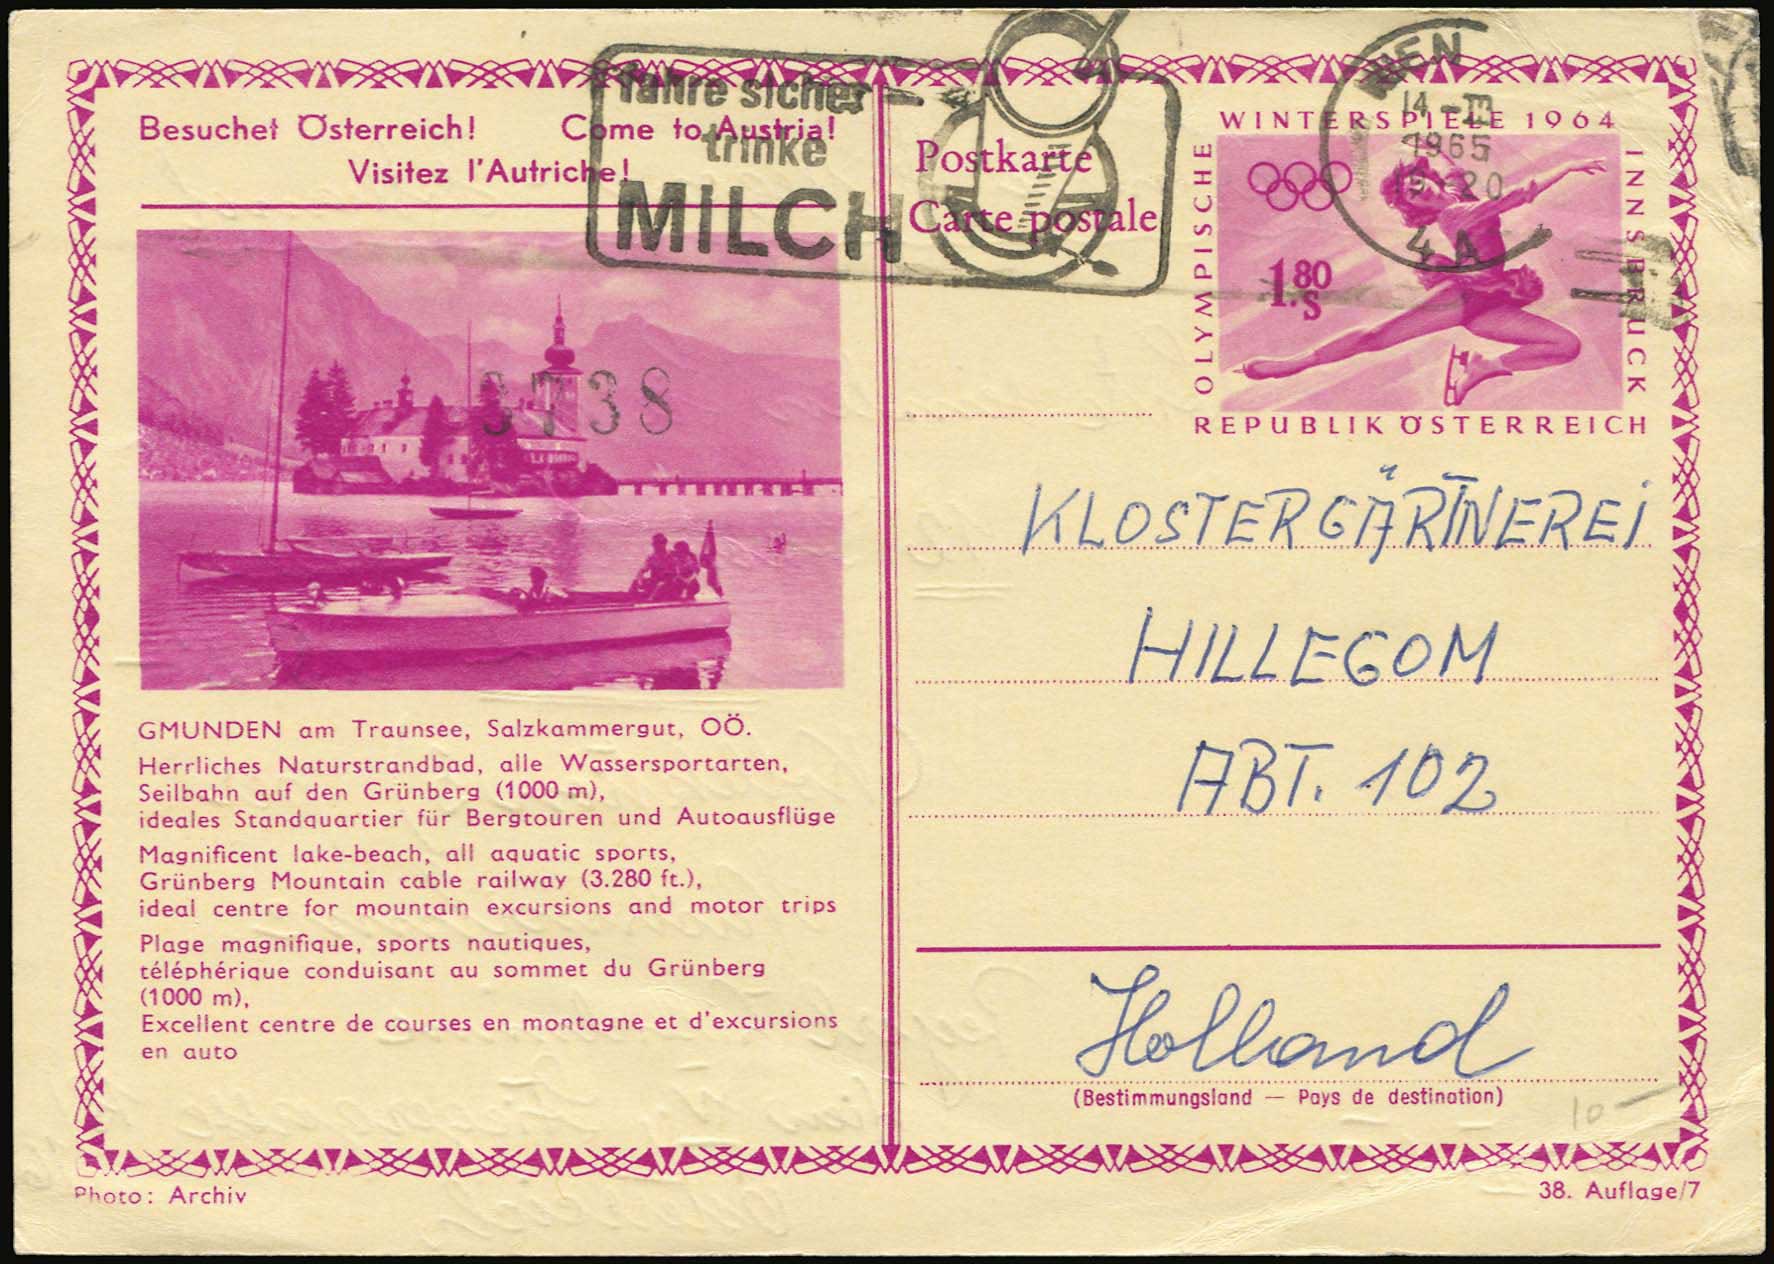 Besuchet Österreich! Come to Austria!
Visitez l'Autriche!
fahre sicher
trinke
MILCH
Postkarte
Carte postale
WINTERSPIELE 1964
OLYMPISCHE
INNSBRUCK
1.80
S
REPUBLIK ÖSTERREICH
WIEN
1965
4 A
3738
KLOSTERGÄRTNEREI
HILLEGOM
ABT. 102
Holland
(Bestimmungsland — Pays de destination)
10 —
GMUNDEN am Traunsee, Salzkammergut, OÖ.
Herrliches Naturstrandbad, alle Wassersportarten,
Seilbahn auf den Grünberg (1000 m),
ideales Standquartier für Bergtouren und Autoausflüge
Magnificent lake-beach, all aquatic sports,
Grünberg Mountain cable railway (3.280 ft.),
ideal centre for mountain excursions and motor trips
Plage magnifique, sports nautiques,
téléphérique conduisant au sommet du Grünberg
(1000 m),
Excellent centre de courses en montagne et d'excursions
en auto
Photo: Archiv
38. Auflage/7